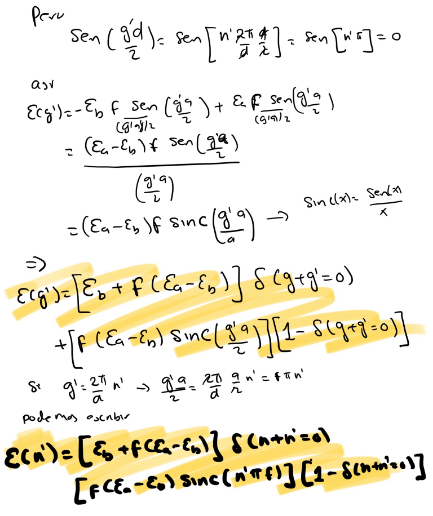 Pero
Sen(g'd/2) = Sen[n' 2π/d d/2] = Sen[n'π] = 0
así
ε(g') = -ε_b f sen(g'a/2)/(g'a)/2 + ε_a f sen(g'a/2)/(g'a)/2
= (ε_a-ε_b) f sen(g'a/2)/(g'a/2)
= (ε_a-ε_b) f sinc(g'a/a) → sinc(x) = sen(x)/x
=>
ε(g') = [ε_b + f(ε_a-ε_b)] δ(g+g'=0)
+ [f(ε_a-ε_b) sinc(g'a/2)][1-δ(g+g'=0)]
Si g' = 2π/a n' → g'a/2 = 2π/d a/2 n' = fπn'
podemos escribir
ε(n') = [ε_b+f(ε_a-ε_b)] δ(n+n'=0)
[f(ε_a-ε_b) sinc(n'πf)][1-δ(n+n'=0)]